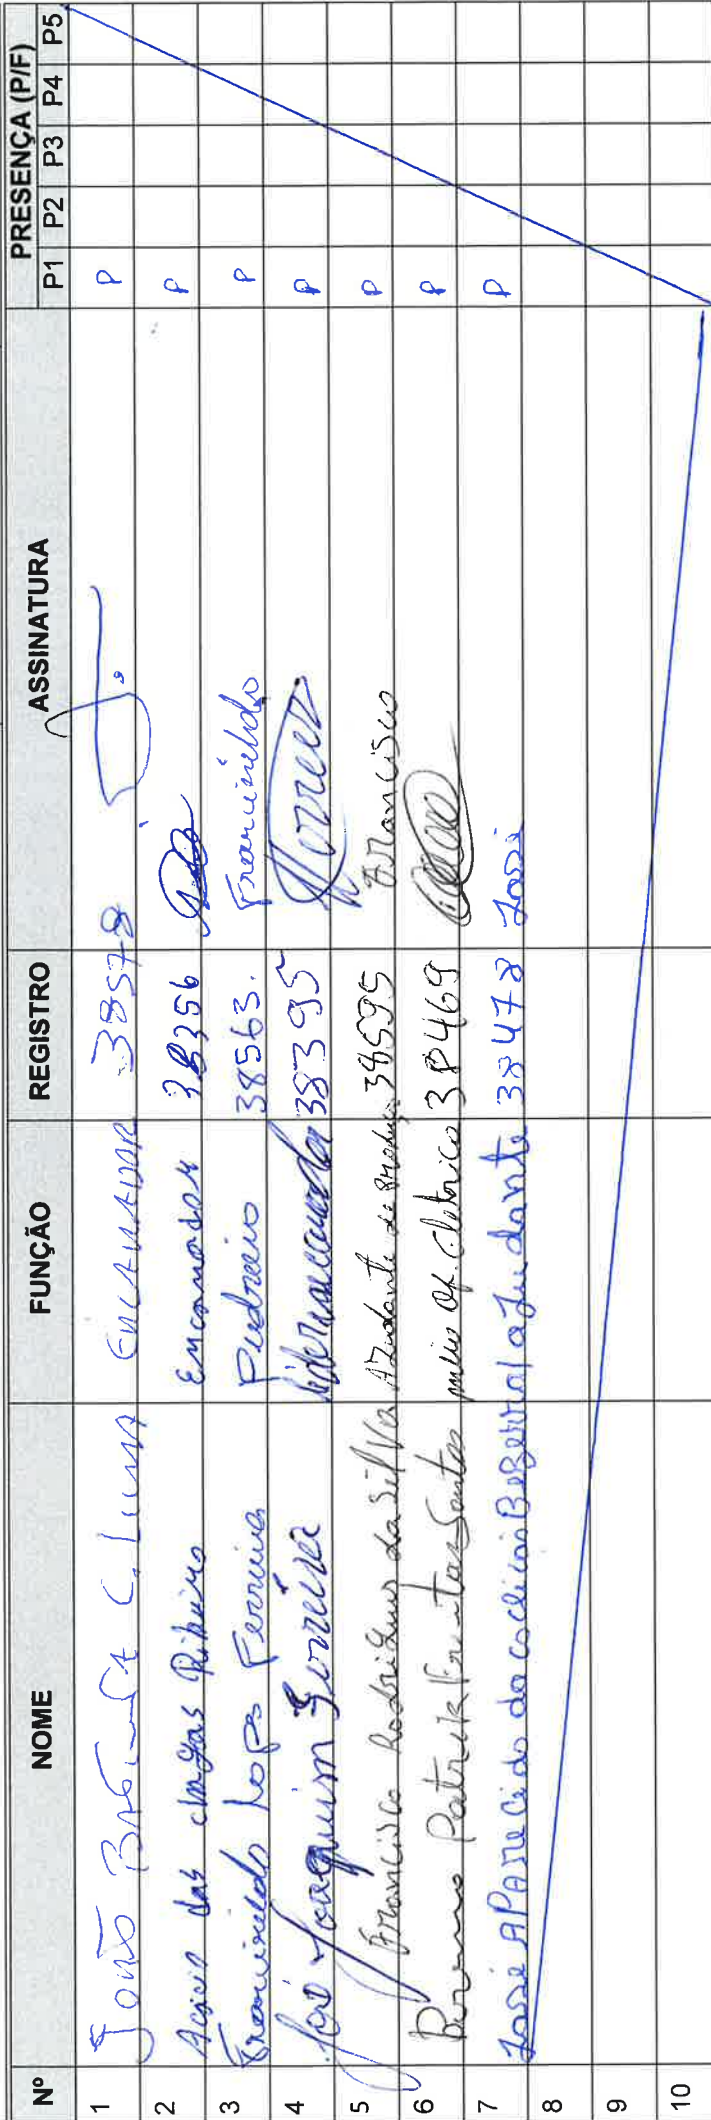 Nº NOME FUNÇÃO REGISTRO ASSINATURA PRESENÇA (P/F)
P1 P2 P3 P4 P5
1 João Batista C. Lima ENCANADOR 38578 P
2 Acacio das chagas Ribeiro Encanador 38356 P
3 Francineldo Lopes Ferreira Pedreiro 38563. Francineldo P
4 José Joaquim Ferreira 38395 Ferreira P
5 Francisco Rodrigues da Silva Ajudante de Produção 38595 Francisco P
6 Bruno Patrik Santos meio Of. eletrico 38469 P
7 José APArecido BeZerra ajudante 38478 José P
8
9
10